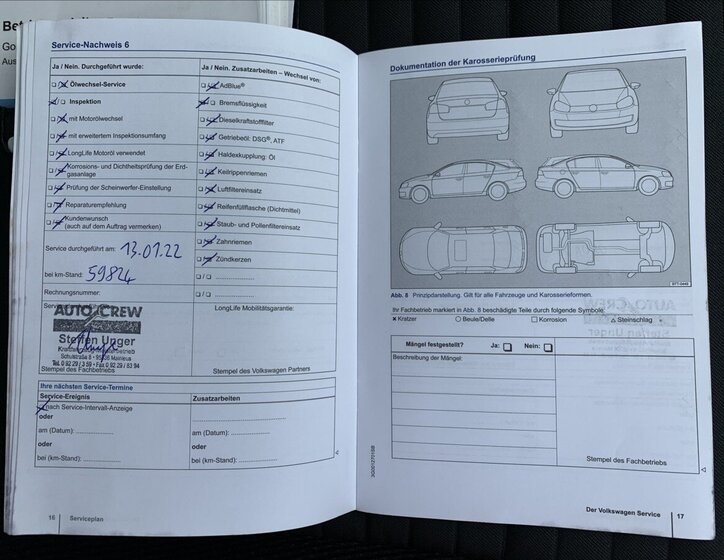 Be
Go
Aus
Service-Nachweis 6
Ja / Nein. Durchgeführt wurde:
Ölwechsel-Service
Inspektion
mit Motorölwechsel
mit erweitertem Inspektionsumfang
LongLife Motoröl verwendet
Korrosions- und Dichtheitsprüfung der Erd-
gasanlage
Prüfung der Scheinwerfer-Einstellung
Reparaturempfehlung
Kundenwunsch
(auch auf dem Auftrag vermerken)
Service durchgeführt am: 13.01.22
bei km-Stand: 59824
Rechnungsnummer:
AUTO CREW
Steffen Unger
Schulstraße 8 • 95336 Mainleus
Tel. 0 92 29 / 3 59 • Fax 0 92 29 / 83 94
Stempel des Fachbetriebs
Ja / Nein. Zusatzarbeiten – Wechsel von:
AdBlue®
Bremsflüssigkeit
Dieselkraftstofffilter
Getriebeöl: DSG®, ATF
Haldexkupplung: Öl
Keilrippenriemen
Luftfiltereinsatz
Reifenfüllflasche (Dichtmittel)
Staub- und Pollenfiltereinsatz
Zahnriemen
Zündkerzen
□ / □ ....................
□ / □ ....................
LongLife Mobilitätsgarantie:
Stempel des Volkswagen Partners
Ihre nächsten Service-Termine
Service-Ereignis
nach Service-Intervall-Anzeige
oder
am (Datum): ....................
oder
bei (km-Stand): ....................
Zusatzarbeiten
....................
am (Datum): ....................
oder
bei (km-Stand): ....................
16 Serviceplan
Dokumentation der Karosserieprüfung
BTT-0449
Abb. 8 Prinzipdarstellung. Gilt für alle Fahrzeuge und Karosserieformen.
Ihr Fachbetrieb markiert in Abb. 8 beschädigte Teile durch folgende Symbole:
× Kratzer ○ Beule/Delle □ Korrosion △ Steinschlag
Mängel festgestellt? Ja: □ Nein: □
Beschreibung der Mängel:
Stempel des Fachbetriebs
Der Volkswagen Service 17